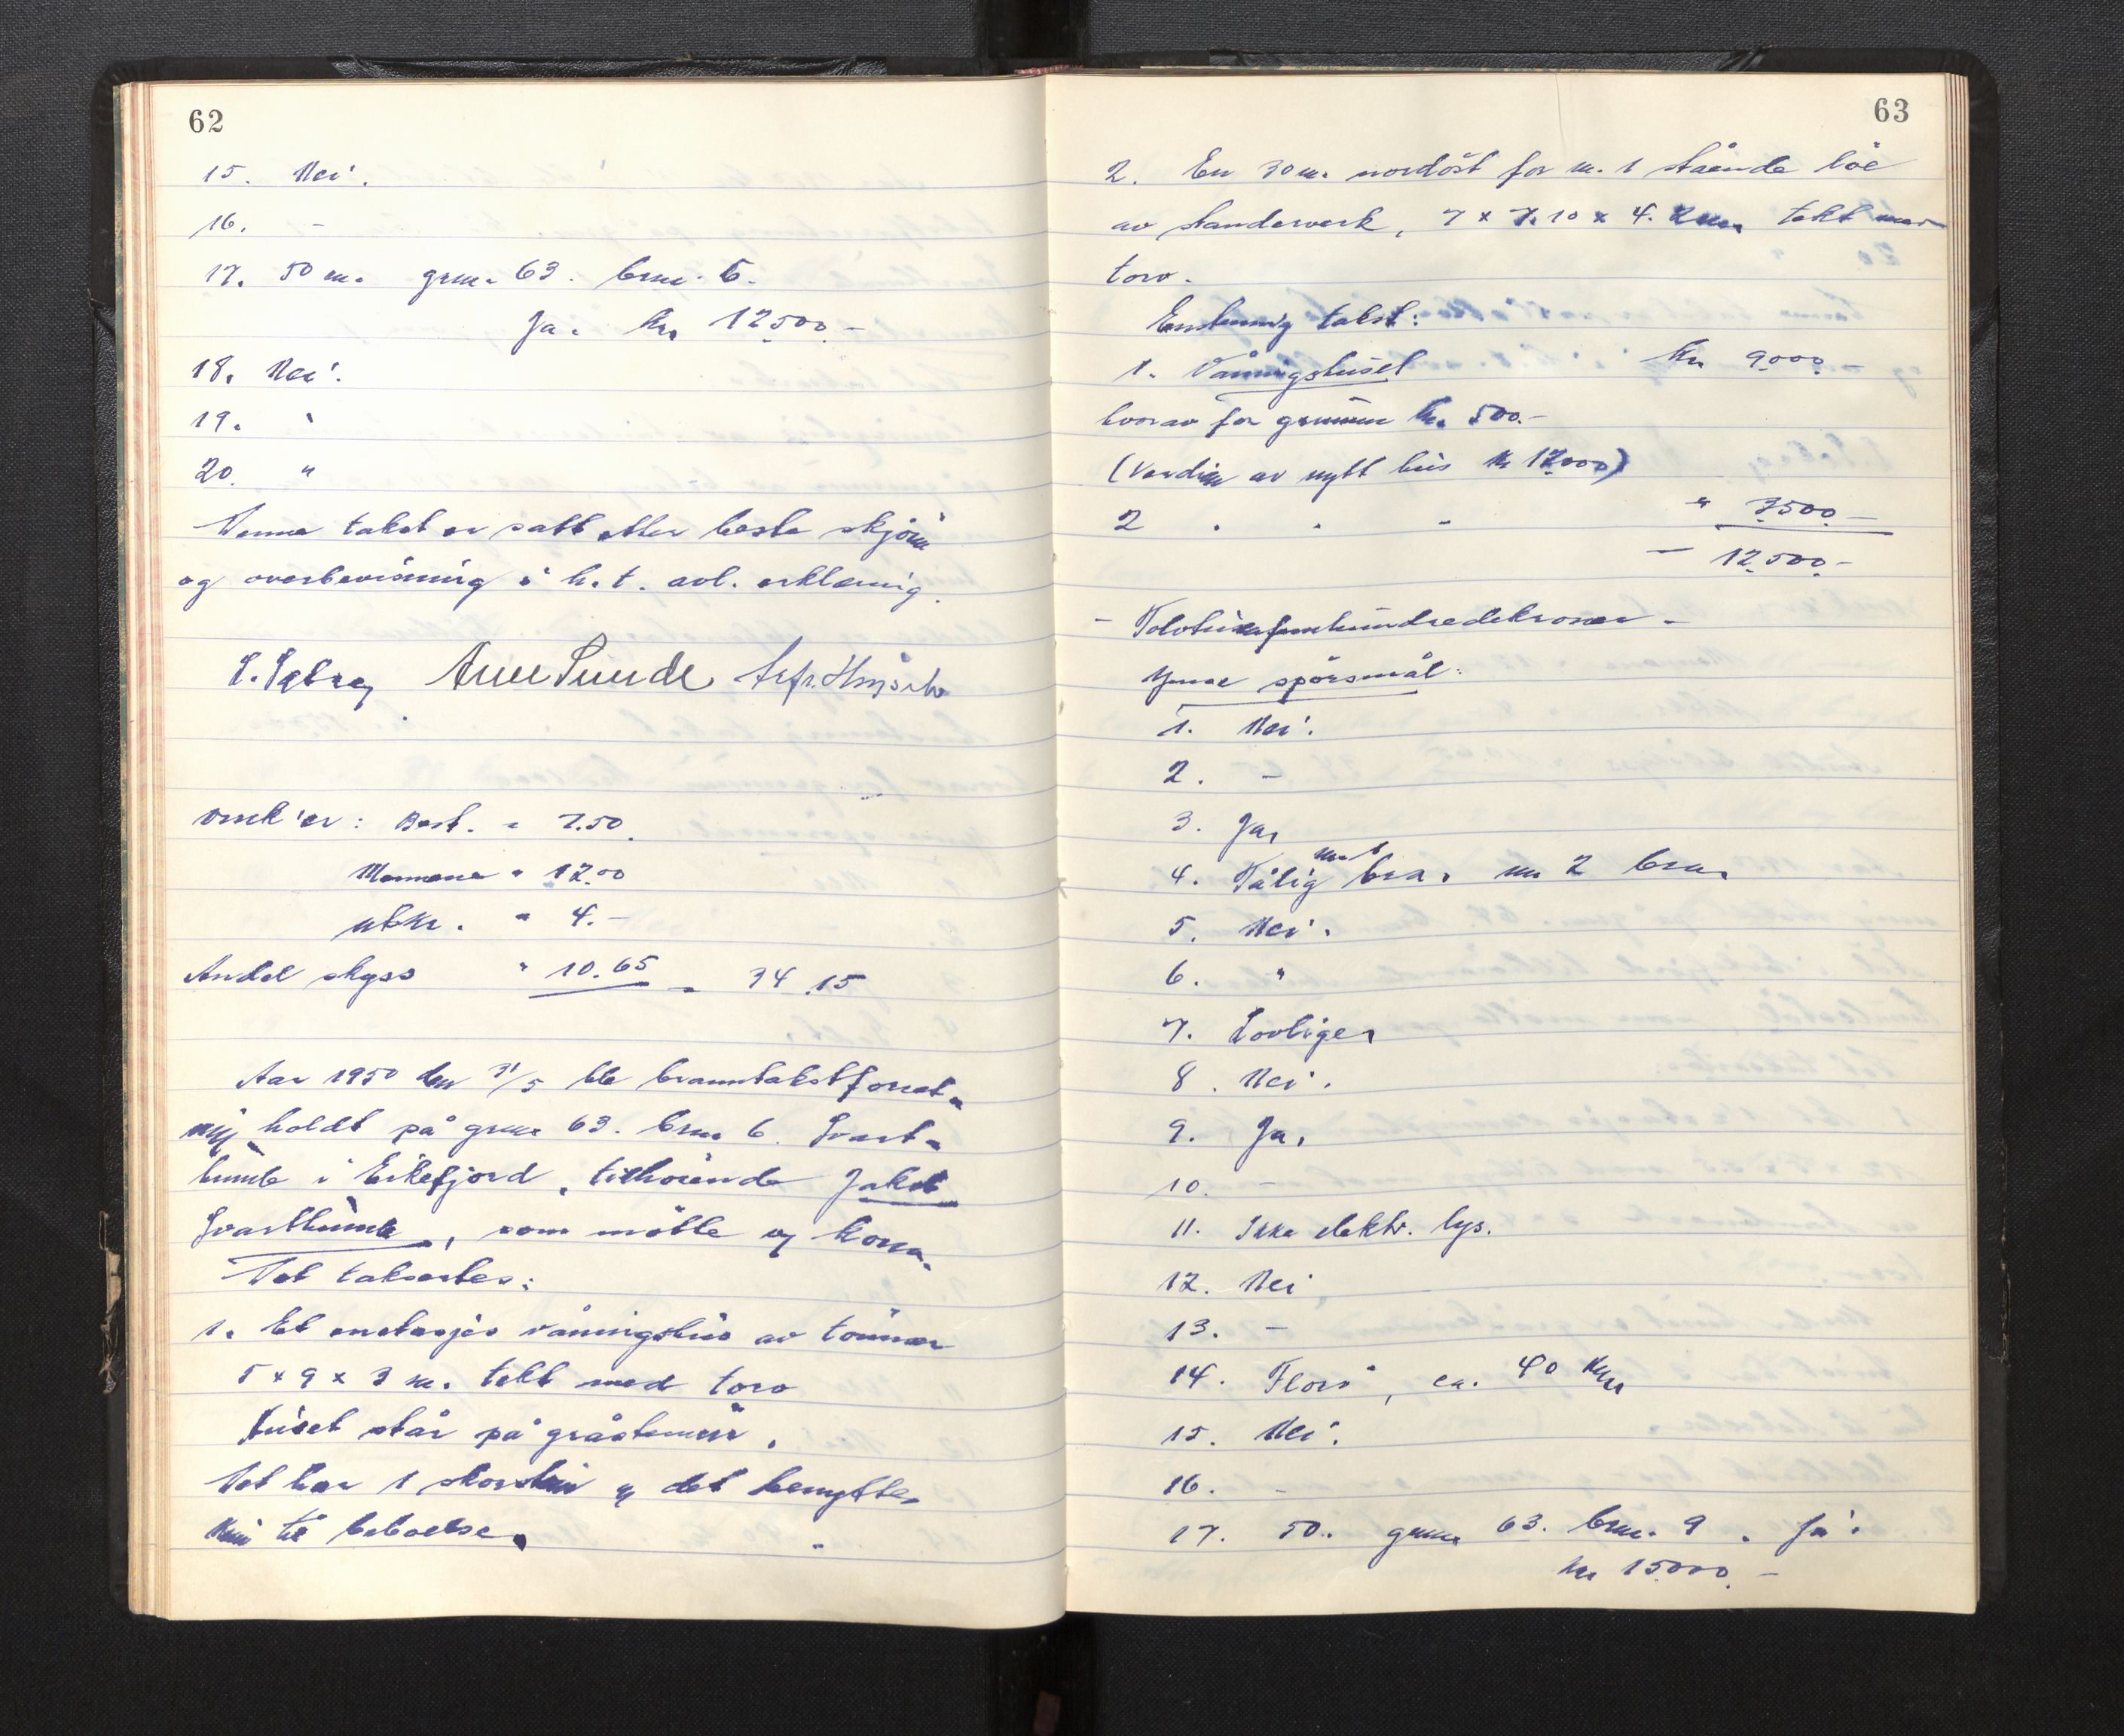 62
15. Nei.
16. -
17. 50 m. grm. 63. brm. 6.
Ja. kr. 12500.-
18. Nei.
19. "
20. "
Denne takst er satt etter beste skjønn
og overbevisning i h.t. avl. erklæring.
Arne Sunde
Omk'er: Best. = 7.50.
Mennene " 12.00
" 4.-
Andel skyss " 10.65 = 34.15
Aar 1950 den 31/5 ble branntakstforret-
ning holdt på grm. 63. brm. 6. Svart-
humle i Eikefjord, tilhørende Jakob
Svarthumle, som møtte og
Det takseres:
1. Et enetasjes våningshus av tømmer
5 x 9 x 3 m. tekt med torv
Huset står på gråstensmur.
Det har 1 skorstein og det benyttes
kun til beboelse.
63
2. En 30 m. nordöst for m. 1 stående löe
av standerverk, 7 x 7.10 x 4. tekt med
torv.
Enstemmig takst:
1. Våningshuset kr. 9000.-
hvorav for grunnmur kr. 500.-
(Verdien av nytt hus kr 12000)
2 " " " " 3500.-
- 12.500.-
- Tolvtusenfemhundredekroner -
Ymse spørsmål:
1. Nei.
2. -
3. Ja,
4. Tålig bra. m. 1 m 2 bra.
5. Nei.
6. "
7. Lovlige.
8. Nei.
9. Ja,
10. -
11. Ikke elektr. lys.
12. Nei
13. -
14. Florö, ca. 40 km
15. Nei.
16. -
17. 50. grm. 63. brm. 9. Ja.
kr 15000.-